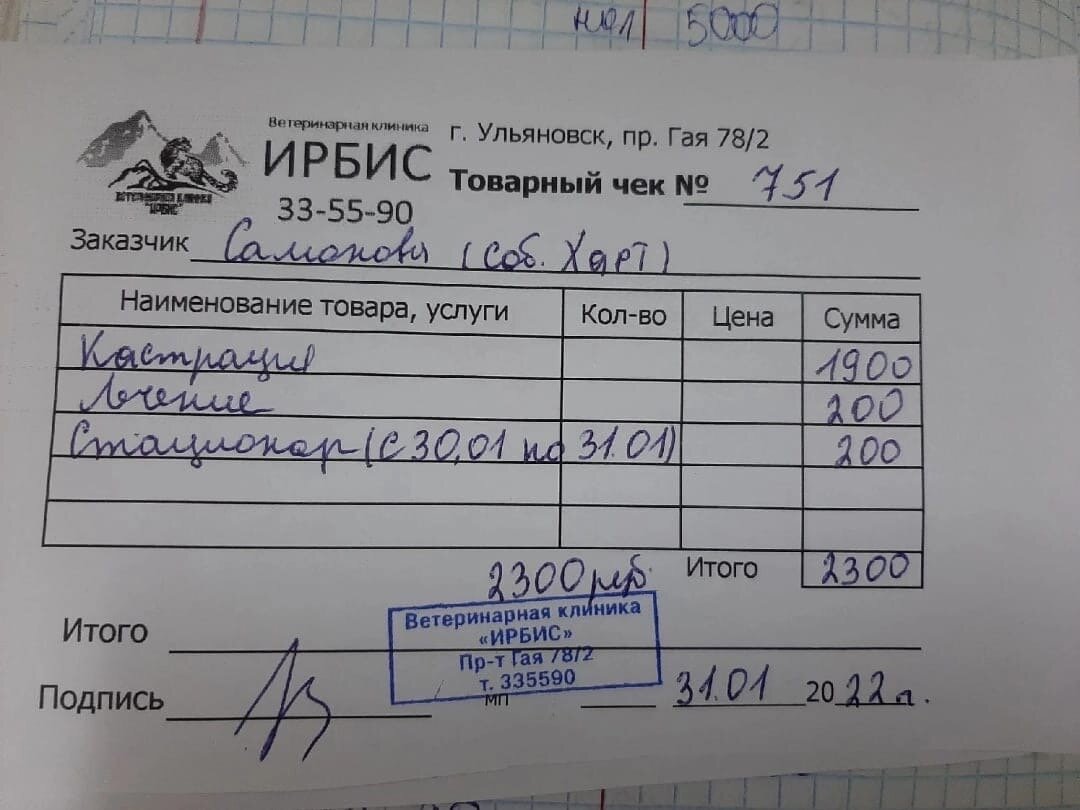 нал 5000
Ветеринарная клиника
ИРБИС
33-55-90
ВЕТЕРИНАРНАЯ КЛИНИКА
"ИРБИС"
г. Ульяновск, пр. Гая 78/2
Товарный чек № 751
Заказчик (соб. Харт)
Наименование товара, услуги Кол-во Цена Сумма
Кастрация 1900
Лечение 200
Стационар (с 30.01 по 31.01) 200
2300 руб. Итого 2300
Ветеринарная клиника
«ИРБИС»
Пр-т Гая 78/2
т. 335590
Итого
Подпись МП 31.01 2022 г.